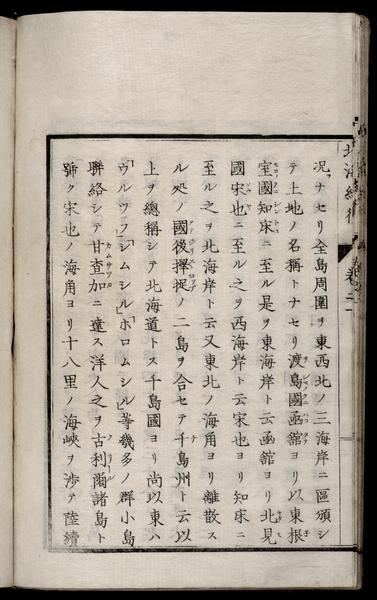 況ナセリ全島周圍ヲ東西北ノ三海岸ニ區頒シ
テ土地ノ名稱トナセリ渡島國函舘ヨリ以東根
室國知床ニ至ル是ヲ東海岸ト云函舘ヨリ北見
國宋也ニ至ル之ヲ西海岸ト云宋也ヨリ知床ニ
至ル之ヲ北海岸ト云又東北ノ海角ヨリ離散ス
ル処ノ國後擇捉ノ二島ヲ合セテ千島州ト云以
上ヲ總稱シテ北海道トス千島國ヨリ尚以東ハ
「ウルツフ」「シムシル」「ホロムシル」等幾多ノ群小島
聯絡シテ甘查加ニ遠ス洋人之ヲ古利爾諸島ト
號ク宋也ノ海角ヨリ十八里ノ海峽ヲ渉テ陸續